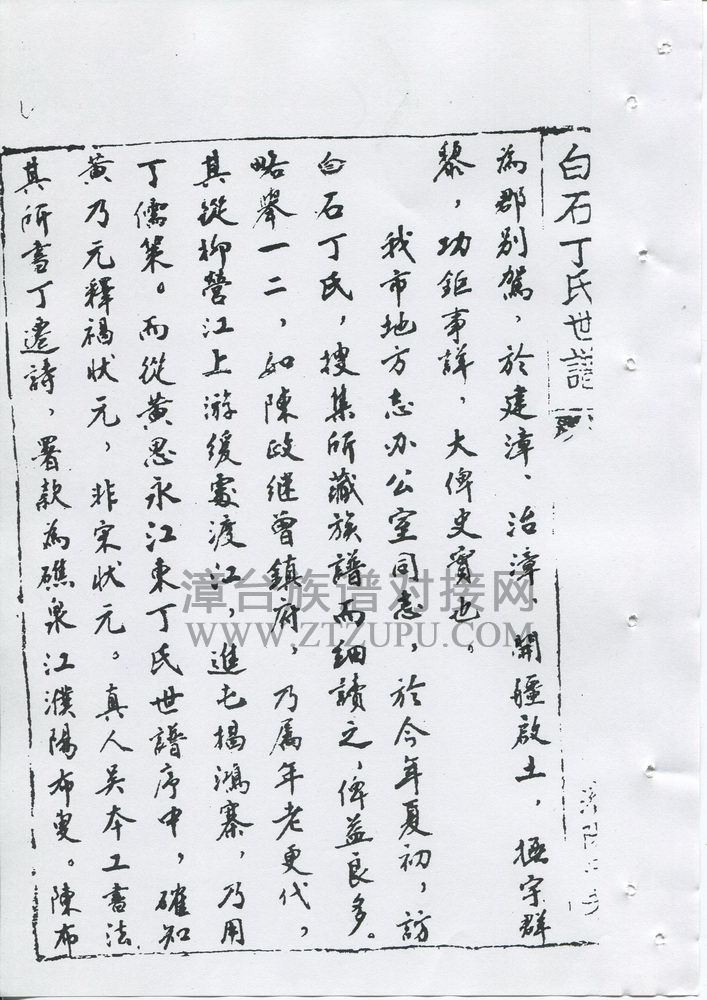 白石丁氏世譜
為郡別駕，於建漳、治漳、開疆啟土，撫字群
黎，功鉅事詳，大俾史實也。
我市地方志办公室同志，於今年夏初，訪
白石丁氏，搜集所藏族譜而細讀之，俾益良多。
略舉一二，如陳政继曾鎮府，乃属年老更代，
其從柳營江上游缓處渡江，進屯揭鴻寨，乃用
丁儒策。而從黄思永江東丁氏世譜序中，確知
黄乃元釋褐状元，非宋状元。真人吴夲工書法
其所書丁遷詩，署款為礁泉江濮陽布叟。陳布
漳台族谱对接网
WWW.ZTZUPU.COM